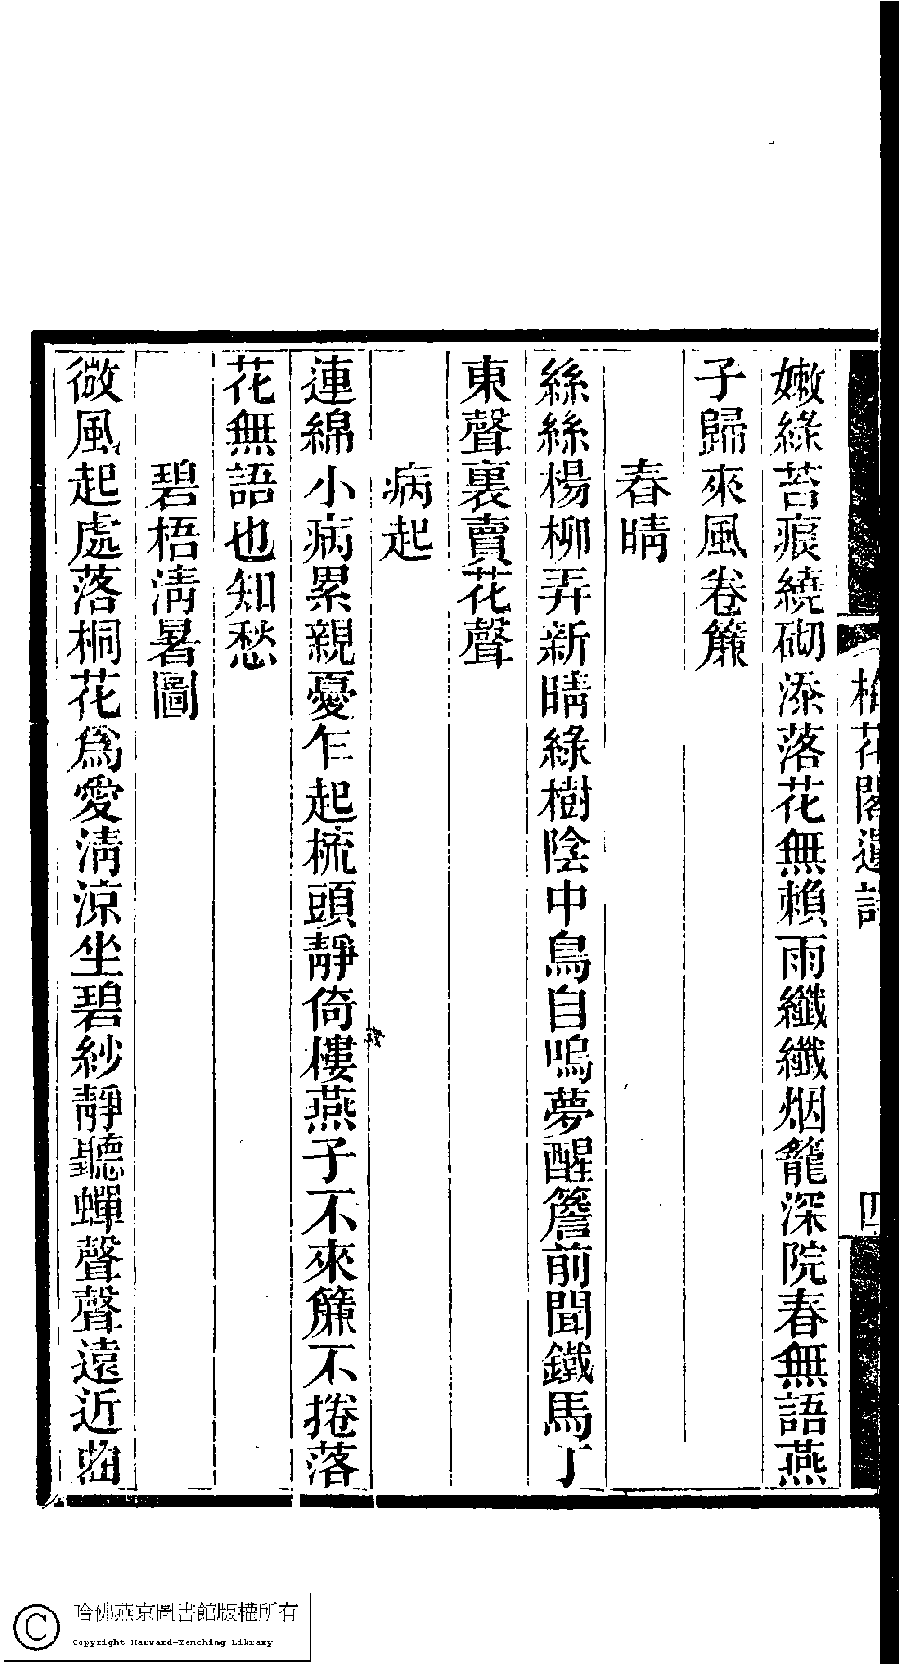 嫩綠苔痕繞砌添落花無賴雨纖纖烟籠深院春無語燕
子歸來風卷簾
春晴
絲絲楊柳弄新晴綠樹陰中鳥自鳴夢醒簷前聞鐵馬丁
東聲裏賣花聲
病起
連綿小病累親憂乍起梳頭靜倚樓燕子不來簾不捲落
花無語也知愁
碧梧清暑圖
微風起處落桐花爲愛清涼坐碧紗靜聽蟬聲聲遠近
梅花閣遺詩
四
哈佛燕京圖書館版權所有
Copyright Harvard-Yenching Library